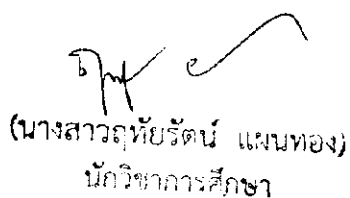 (นางสาวฤทัยรัตน์ แผนทอง)
นักวิชาการศึกษา